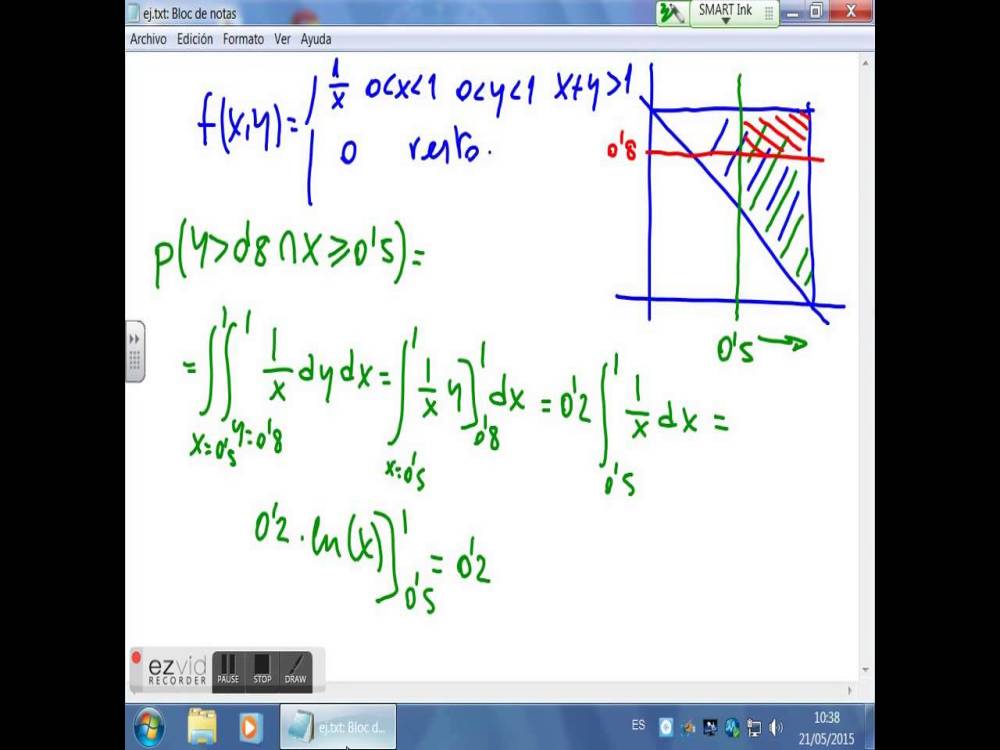 ej.txt: Bloc de notas
SMART Ink
Archivo Edición Formato Ver Ayuda
f(x,y)= 1/x 0<x<1 0<y<1 x+y>1
0 resto.
0'8
P(Y>0'8∩X⩾0'5)=
0'5
=∫∫ 1 1 1/x dy dx = ∫ 1 1/x y] 1 dx = 0'2 ∫ 1 1/x dx =
x=0'5 y=0'8 x=0'5 0'8 0'5
0'2·ln(x)] 1 0'5 = 0'2
ezvid
RECORDER
PAUSE STOP DRAW
ej.txt: Bloc d...
ES
10:38
21/05/2015